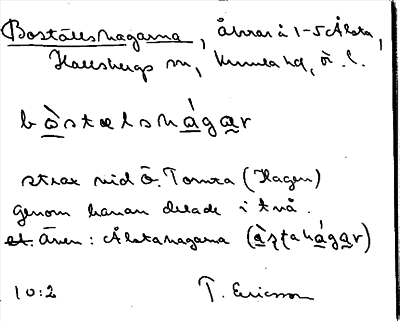 Boställshagarna, åkrar å 1-5 Ålsta,
Hallsbergs sn, Kumla hd, ö. l.
bòstælshágar
strax vid Ö. Tomta (Hagen)
genom banan delade i två.
et. även: Ålstahagarna (àʂʈahágar)
10:2 T. Ericsson